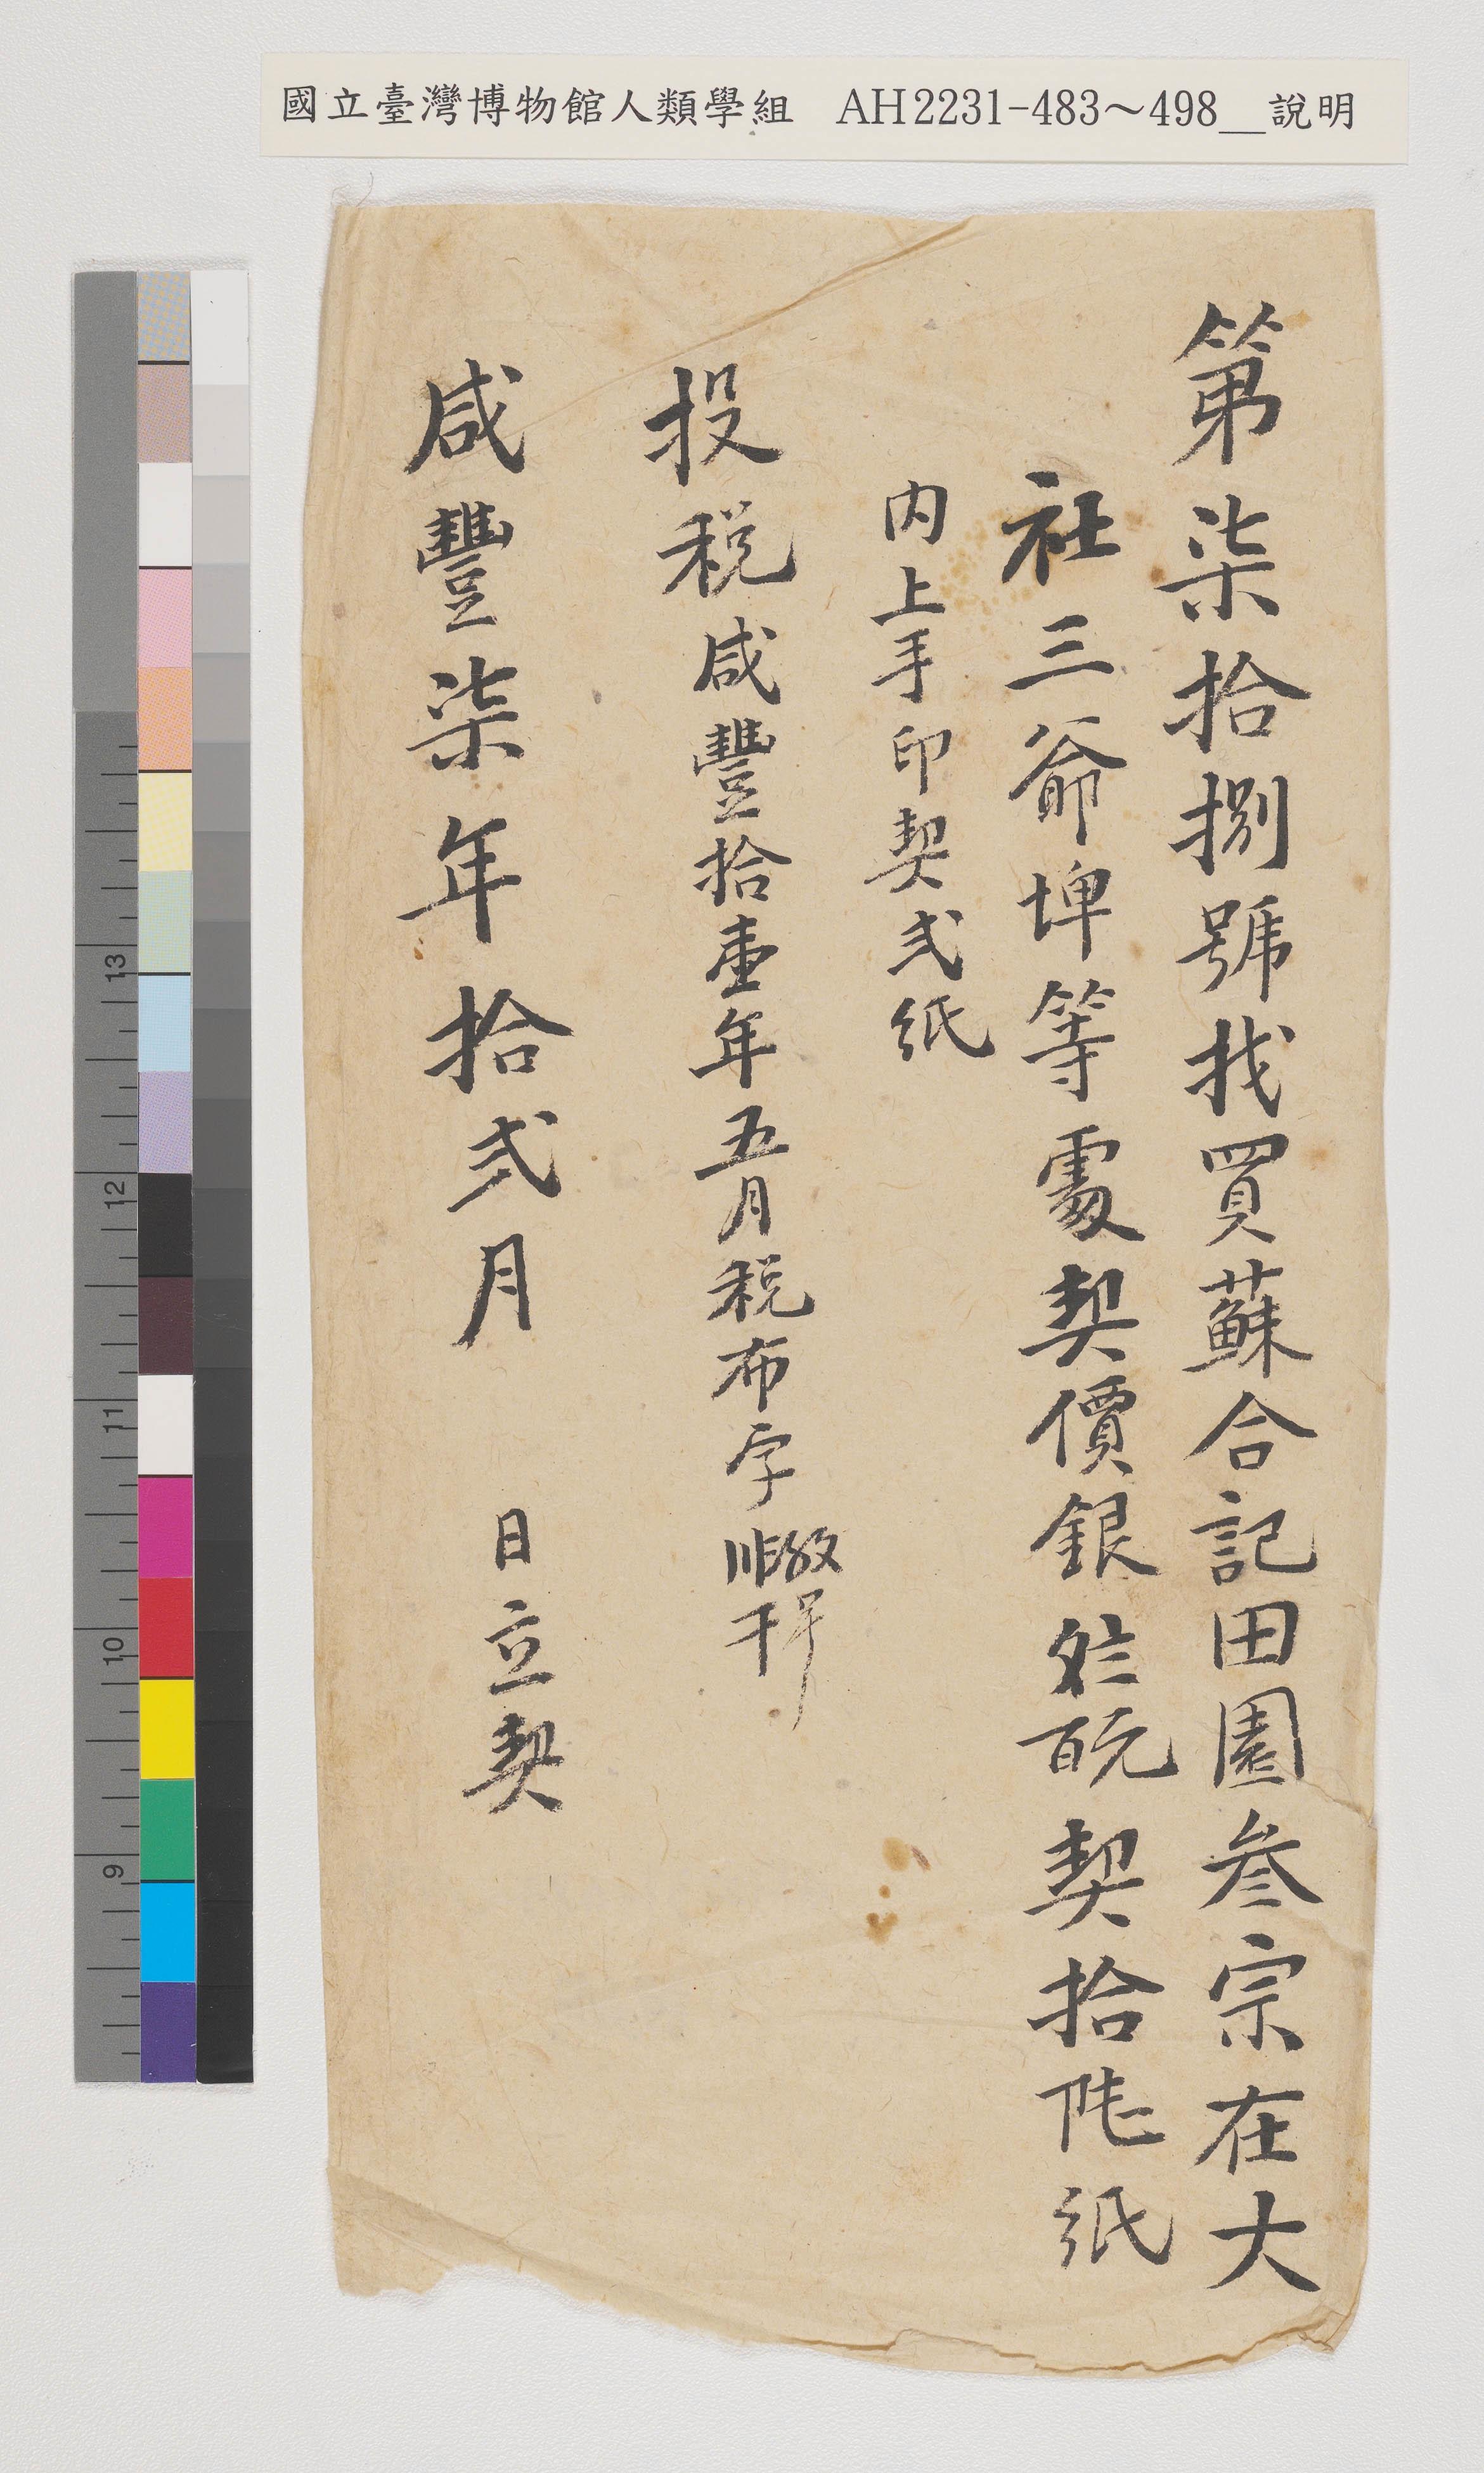 國立臺灣博物館人類學組 AH2231-483~498__說明
第柒拾捌號找買蘇合記田園叁宗在大
社三爺埤等處契價銀 百元契拾陸紙
內上手印契弍紙
投稅咸豐拾壹年五月稅布字 號
咸豐柒年拾弍月 日立契
13
12
11
10
9